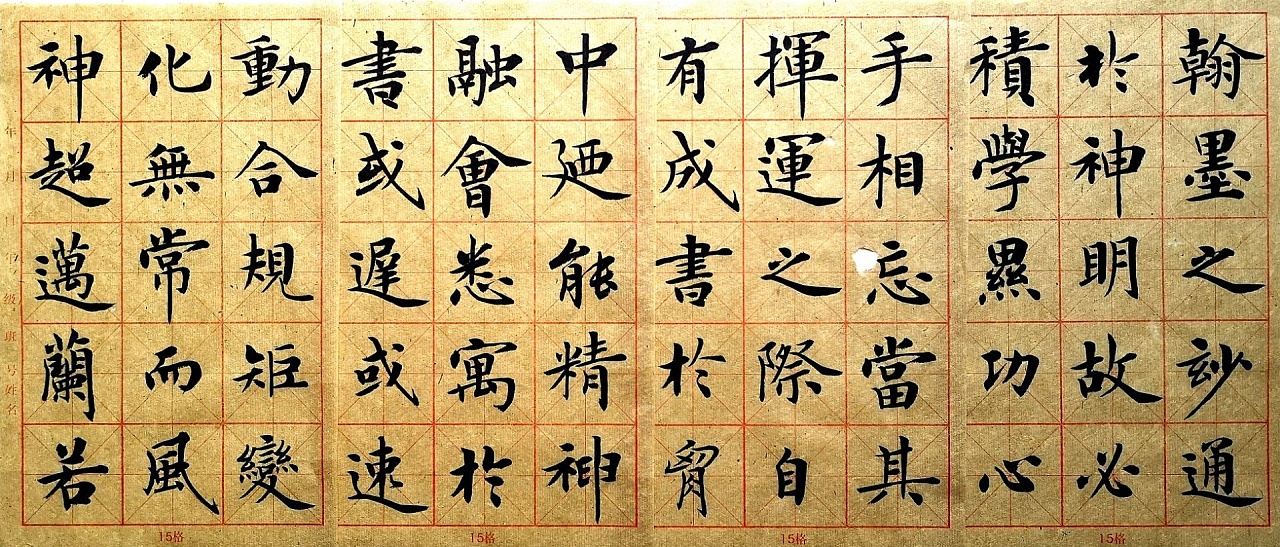 翰墨之玅通
於神明故必
積學累功心
手相忘當其
揮運之際自
有成書於胷
中廼能精神
融會悉寓於
書或遲或速
動合規矩變
化無常而風
神超邁蘭若
年 月 日 年级 班 号 姓名
15格
15格
15格
15格